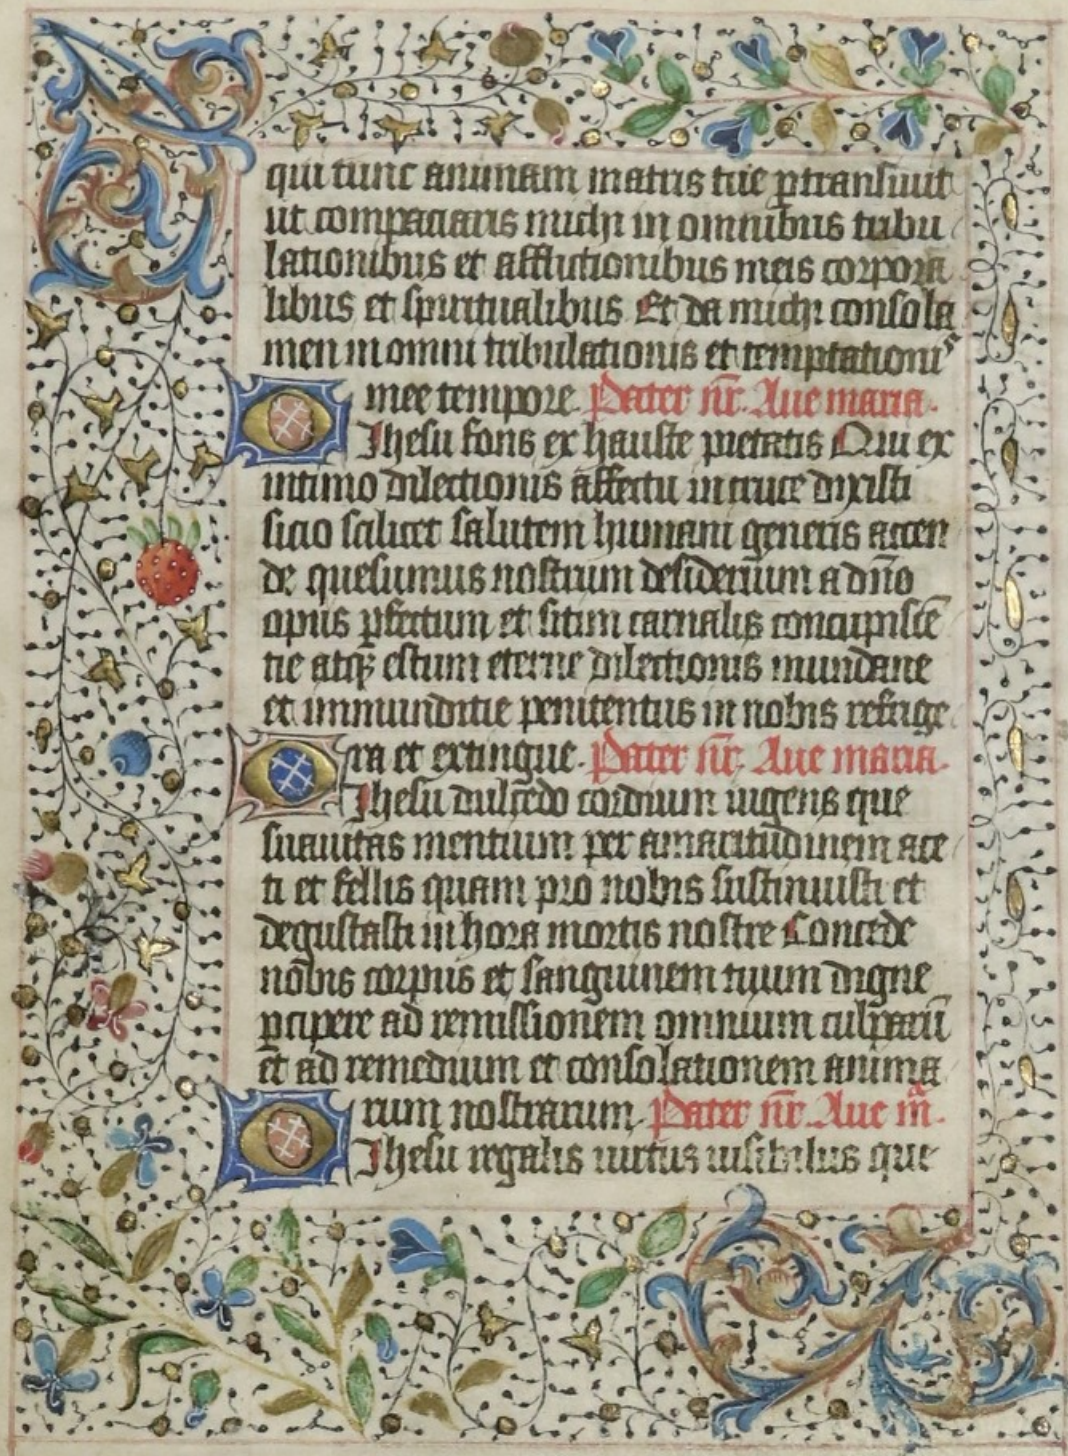 qui tunc animam matris tue ꝑtransiuit
ut compaciaris michi in omnibus tribu
lationibus et afflictionibus meis corpora
libus et spiritualibus Et da michi consola
men in omni tribulationis et temptationis
mee tempore Pater nr̄. Aue maria.
O Jhesu fons ex hauste pietatis Qui ex
intimo dilectionis affectu in cruce dixisti
sicio scilicet salutem humani generis accen
de quesumus nostrum desiderium a dn̄o
opus ꝑfectum et sitim carnalis concupiscē
tie atqꝫ estum eterne dilectionis mundane
et immunditie penitentus in nobis refrige
ra et extingue. Pater nr̄. Aue maria.
O Jhesu dulcedo cordium uigens que
suauitas mentium per amaritudinem ace
ti et fellis quam pro nobis sustinuisti et
degustasti in hora mortis nostre Concede
nobis corpus et sanguinem tuum digne
ꝑcipere ad remissionem omnium culparū
et ad remedium et consolationem anima
rum nostrarum. Pater nr̄. Aue mā.
O Jhesu regalis uirtus uisibilus que